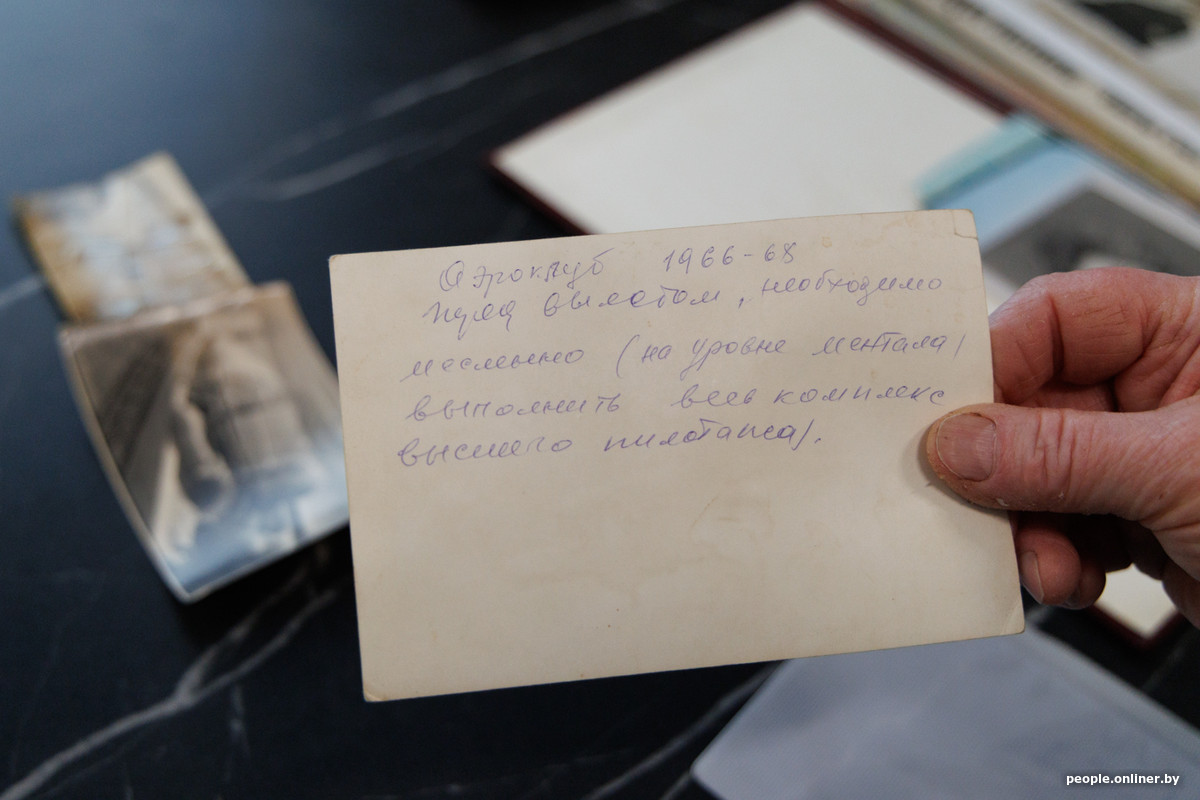 Аэроклуб 1966-68
перед вылетом, необходимо
мысленно (на уровне ментала)
выполнить весь комплекс
высшего пилотажа).
people.onliner.by